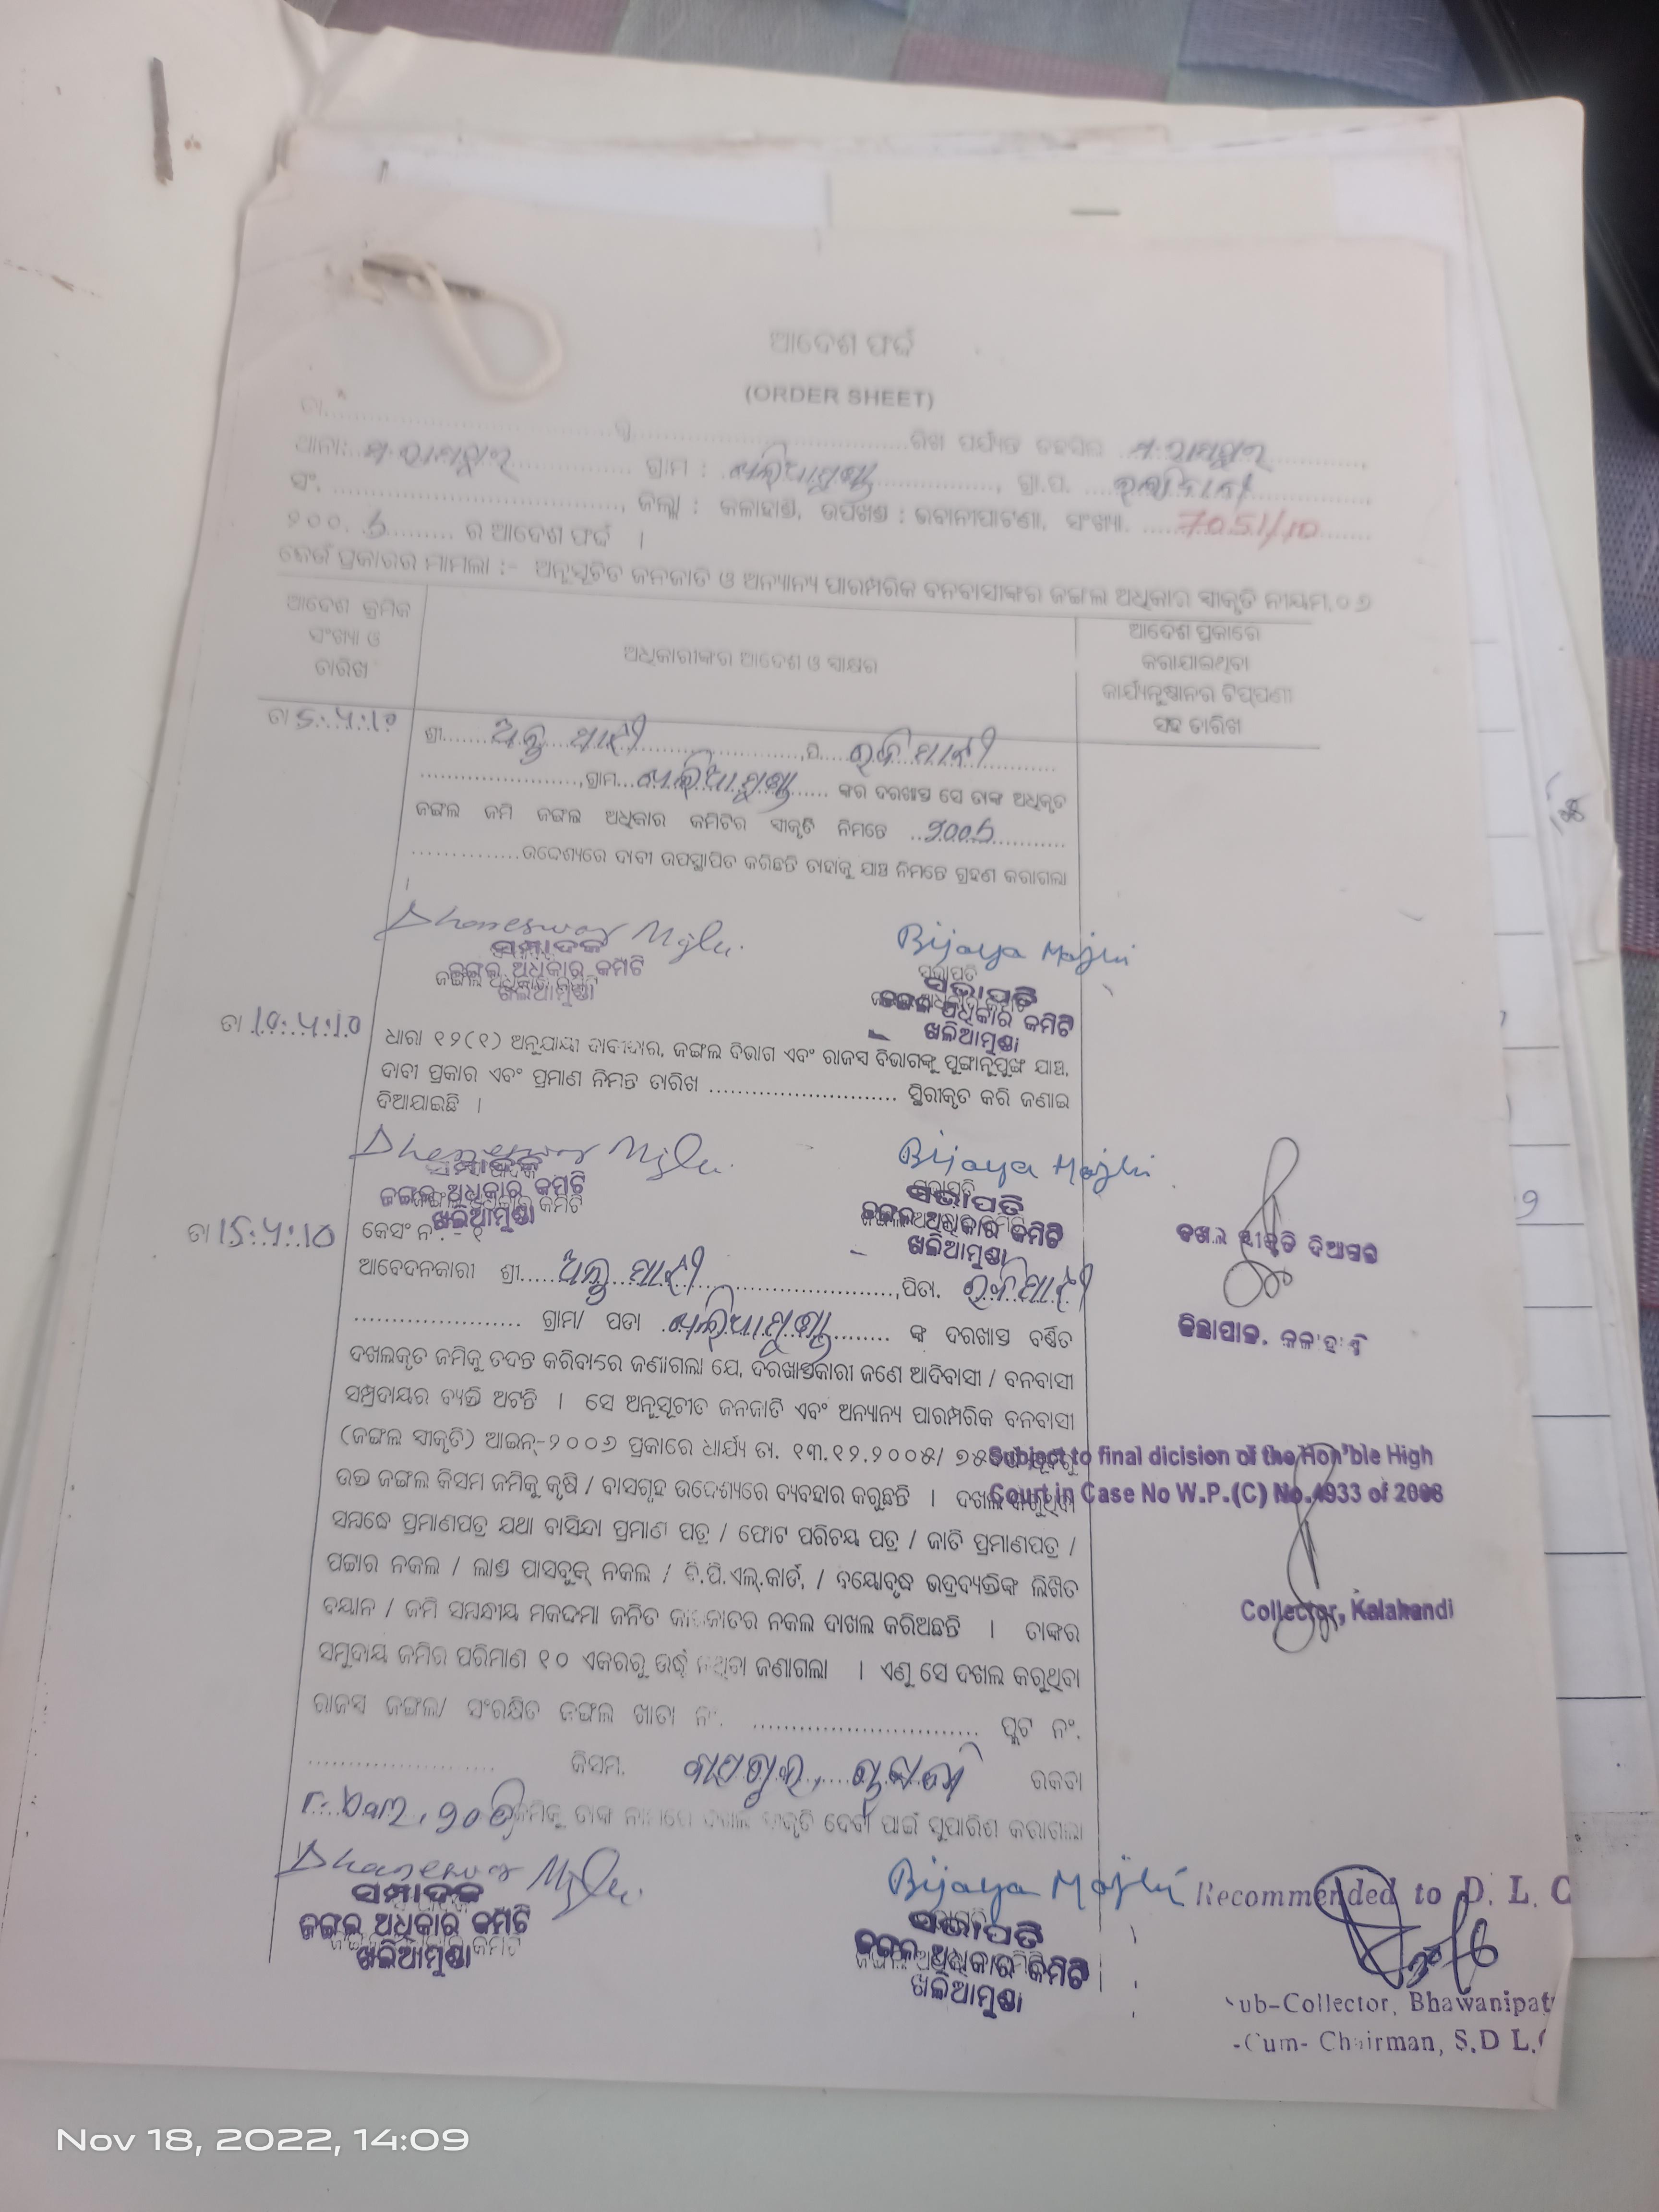 ଆଦେଶ ଫର୍ଦ୍ଦ
(ORDER SHEET)
ତା
ଥାନା: ମ. ରାମପୁର ଗ୍ରାମ : ଖଲିଆମୁଣ୍ଡା, ଗ୍ରା.ପ.
ସଂ. , ଜିଲ୍ଲା : କଳାହାଣ୍ଡି, ଉପଖଣ୍ଡ : ଭବାନୀପାଟଣା, ସଂଖ୍ୟା. 7051/10
୨୦୦. ର ଆଦେଶ ଫର୍ଦ୍ଦ ।
କେଉଁ ପ୍ରକାରର ମାମଲା :- ଅନୁସୂଚିତ ଜନଜାତି ଓ ଅନ୍ୟାନ୍ୟ ପାରମ୍ପରିକ ବନବାସୀଙ୍କର ଜଙ୍ଗଲ ଅଧିକାର ସ୍ୱୀକୃତି ନୀୟମ,୦୭
ଆଦେଶ କ୍ରମିକ
ସଂଖ୍ୟା ଓ
ତାରିଖ
ଅଧିକାରୀଙ୍କର ଆଦେଶ ଓ ସ୍ୱାକ୍ଷର
ଆଦେଶ ପ୍ରକାରେ
କରାଯାଇଥିବା
କାର୍ଯ୍ୟାନୁଷ୍ଠାନର ଟିପ୍ପଣୀ
ସହ ତାରିଖ
ତା 5.4.10
ଶ୍ରୀ ମାଝୀ ,ପି. ମାଝୀ
,ଗ୍ରାମ ଖଲିଆମୁଣ୍ଡା ଙ୍କର ଦରଖାସ୍ତ ସେ ତାଙ୍କ ଅଧିକୃତ
ଜଙ୍ଗଲ ଜମି ଜଙ୍ଗଲ ଅଧିକାର କମିଟିର ସ୍ୱୀକୃତି ନିମନ୍ତେ
ଉଦ୍ଦେଶ୍ୟରେ ଦାବୀ ଉପସ୍ଥାପିତ କରିଛନ୍ତି ତାହାକୁ ଯାଞ୍ଚ ନିମନ୍ତେ ଗ୍ରହଣ କରାଗଲା
।
Dhaneswar Majhi Bijaya Majhi
ସମ୍ପାଦକ ସଭାପତି
ଜଙ୍ଗଲ ଅଧିକାର କମିଟି ଜଙ୍ଗଲ ଅଧିକାର କମିଟି
ଖଲିଆମୁଣ୍ଡା ଖଲିଆମୁଣ୍ଡା
ତା 10.4.10
ଧାରା ୧୨(୧) ଅନୁଯାୟୀ ଦାବୀଦାର, ଜଙ୍ଗଲ ବିଭାଗ ଏବଂ ରାଜସ୍ୱ ବିଭାଗଙ୍କୁ ପୁଙ୍ଖାନୁପୁଙ୍ଖ ଯାଞ୍ଚ,
ଦାବୀ ପ୍ରକାର ଏବଂ ପ୍ରମାଣ ନିମନ୍ତେ ତାରିଖ ସ୍ଥିରୀକୃତ କରି ଜଣାଇ
ଦିଆଯାଇଛି ।
Dhaneswar Majhi Bijaya Majhi
ସମ୍ପାଦକ ସଭାପତି
ଜଙ୍ଗଲ ଅଧିକାର କମିଟି ଜଙ୍ଗଲ ଅଧିକାର କମିଟି
ଖଲିଆମୁଣ୍ଡା ଖଲିଆମୁଣ୍ଡା
ଦଖଲ ସ୍ୱୀକୃତି ଦିଆଗଲା
ଜିଲ୍ଲାପାଳ, କଳାହାଣ୍ଡି
ତା 15.4.10
କେସଂ ନଂ.- ୧
ଆବେଦନକାରୀ ଶ୍ରୀ ମାଝୀ ,ପିତା. ମାଝୀ
ଗ୍ରାମ/ ପଡା ଖଲିଆମୁଣ୍ଡା ଙ୍କ ଦରଖାସ୍ତ ବର୍ଣ୍ଣିତ
ଦଖଲକୃତ ଜମିକୁ ତଦନ୍ତ କରିବାରେ ଜଣାଗଲା ଯେ, ଦରଖାସ୍ତକାରୀ ଜଣେ ଆଦିବାସୀ / ବନବାସୀ
ସମ୍ପ୍ରଦାୟର ବ୍ୟକ୍ତି ଅଟନ୍ତି । ସେ ଅନୁସୂଚୀତ ଜନଜାତି ଏବଂ ଅନ୍ୟାନ୍ୟ ପାରମ୍ପରିକ ବନବାସୀ
(ଜଙ୍ଗଲ ସ୍ୱୀକୃତି) ଆଇନ୍-୨୦୦୬ ପ୍ରକାରେ ଧାର୍ଯ୍ୟ ତା. ୧୩.୧୨.୨୦୦୫/ ୭୫
ଉକ୍ତ ଜଙ୍ଗଲ କିସମ ଜମିକୁ କୃଷି / ବାସଗୃହ ଉଦ୍ଦେଶ୍ୟରେ ବ୍ୟବହାର କରୁଛନ୍ତି । ଦଖଲ କରୁଥିବା
Subject to final dicision of the Hon'ble High
Court in Case No W.P.(C) No.4933 of 2008
ସମ୍ବନ୍ଧେ ପ୍ରମାଣପତ୍ର ଯଥା ବାସିନ୍ଦା ପ୍ରମାଣ ପତ୍ର / ଫୋଟ ପରିଚୟ ପତ୍ର / ଜାତି ପ୍ରମାଣପତ୍ର /
ପଟ୍ଟାର ନକଲ / ଲାଣ୍ଡ ପାସବୁକ୍ ନକଲ / ବି.ପି.ଏଲ୍.କାର୍ଡ, / ବୟୋବୃଦ୍ଧ ଭଦ୍ରବ୍ୟକ୍ତିଙ୍କ ଲିଖିତ
ବୟାନ / ଜମି ସମ୍ବନ୍ଧୀୟ ମକଦ୍ଦମା ଜନିତ କାଗଜାତର ନକଲ ଦାଖଲ କରିଅଛନ୍ତି । ତାଙ୍କର
Collector, Kalahandi
ସମୁଦାୟ ଜମିର ପରିମାଣ ୧୦ ଏକରରୁ ଉର୍ଦ୍ଧ୍ୱ ନଥିବା ଜଣାଗଲା । ଏଣୁ ସେ ଦଖଲ କରୁଥିବା
ରାଜସ୍ୱ ଜଙ୍ଗଲ/ ସଂରକ୍ଷିତ ଜଙ୍ଗଲ ଖାତା ନଂ. ପ୍ଲଟ ନଂ.
କିସମ. ରକବା
ଜମିକୁ ତାଙ୍କ ନାମରେ ଦଖଲ ସ୍ୱୀକୃତି ଦେବା ପାଇଁ ସୁପାରିଶ କରାଗଲା
Dhaneswar Majhi Bijaya Majhi
ସମ୍ପାଦକ ସଭାପତି
ଜଙ୍ଗଲ ଅଧିକାର କମିଟି ଜଙ୍ଗଲ ଅଧିକାର କମିଟି
ଖଲିଆମୁଣ୍ଡା ଖଲିଆମୁଣ୍ଡା
Recommended to D. L. C
ub-Collector, Bhawanipat
-Cum- Chairman, S.D L.
Nov 18, 2022, 14:09